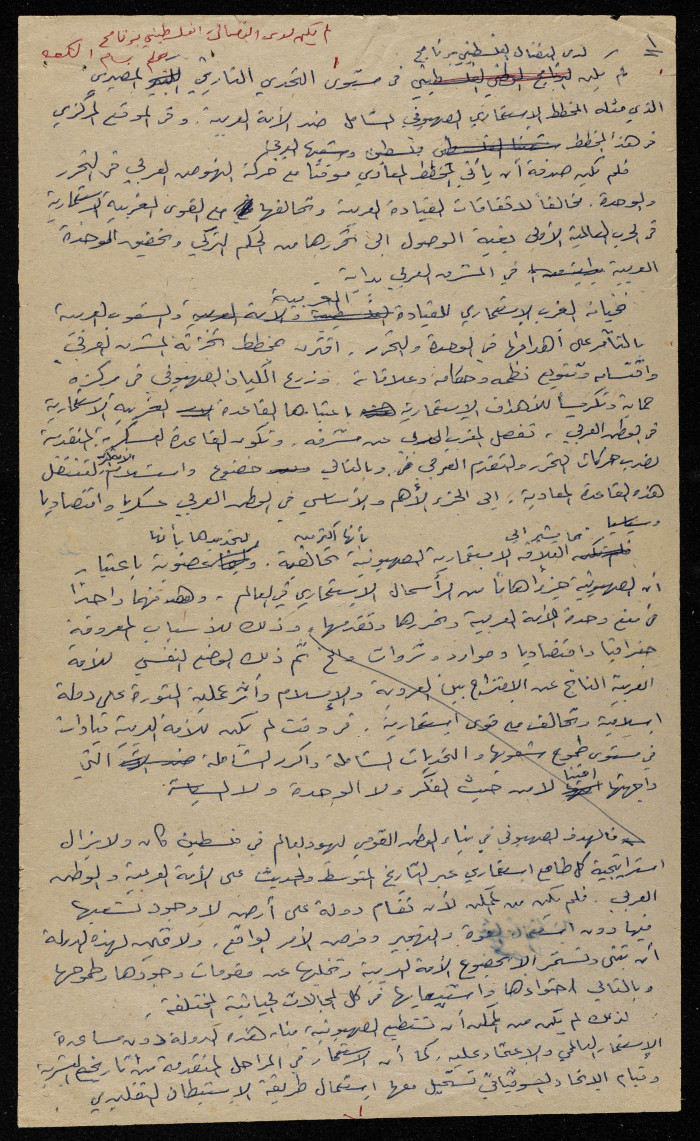 لم يكن لدى النضال الفلسطيني برنامج
بسام
١
لدى النضال الفلسطيني برنامج
لم يكن البرنامج الوطني الفلسطيني في مستوى التحدي التاريخي المصيري
الذي مثله المخطط الاستعماري الصهيوني الشامل ضد الأمة العربية. وفي الموقع المركزي
في هذا المخطط فلسطين وشعبها العربي
فلم تكن صدفة أن يأتي المخطط المعادي موقتاً مع حركة النهوض العربي في التحرر
والوحدة. مخالفاً لاتفاقات القيادة العربية وتحالفها مع القوى الغربية الاستعمارية
في الحرب العالمية الأولى بغية الوصول الى تحررها من الحكم التركي وتحقيق الوحدة
العربية في المشرق العربي بداية
العربية
فخيانة الغرب الاستعماري للقيادة والأمة العربية والشعوب العربية
بالتآمر على أهدافها في الوحدة والتحرر. اقترن بمخطط تجزئة المشرق العربي
واقتسامه وتنويع نظمه وحكامه وعلاقاته. وزرع الكيان الصهيوني في مركزه
حماية وتكريساً للأهداف الاستعمارية باعتبارها القاعدة الغربية الاستعمارية
في الوطن العربي، تفصل المغرب العربي عن مشرقه. وتكون القاعدة العسكرية المتقدمة
لضرب حركات التحرر والتقدم العربي وبالتالي خضوع واستسلام لتنتقل
هذه القاعدة المعادية. إلى الجزء الأهم والأساسي في الوطن العربي عسكريا واقتصاديا
وسياسيا
مما يشير الى بأنها أكثر من لتحديدها بأنها
العلاقة الاستعمارية الصهيونية تحالفية. عضوية باعتبار
أن الصهيونية جزءا هاما من الرأسمال الاستعماري في العالم. وهدفهما واحدا
في منع وحدة الأمة العربية وتحررها وتقدمها، وذلك للأسباب المعروفة
جغرافيا واقتصاديا وموارد وثروات والخ ثم ذلك الوضع النفسي للأمة
العربية الناتج عن الامتزاج بين العروبة والإسلام وأثر عملية الثورة على دولة
إسلامية وتحالف مع قوى استعمارية. في وقت لم يكن للأمة العربية قيادات
في مستوى طموح شعوبها والتحديات الشاملة والحرب الشاملة التي
واجهتها لا من حيث الفكر ولا الوحدة ولا السياسة
فالهدف الصهيوني في بناء الوطن القومي ليهود العالم في فلسطين كان ولا يزال
استراتيجية كل طامع استعماري عبر التاريخ المتوسط والحديث على الأمة العربية والوطن
العربي. فلم يكن من الممكن لأن تقام دولة على أرض لا وجود لشعبها
فيها دون استعمال القوة والتهجير وفرض الأمر الواقع. ولا يمكن لهذه الدولة
أن تبنى وتستمر إلا بخضوع الأمة العربية وتخليها عن مقومات وجودها وطموحها
وبالتالي احتواءها واستيعابها في كل المجالات الحياتية المختلفة.
لذلك لم يكن من الممكن أن تستطيع الصهيونية بناء هذه الدولة دون مساعدة
الاستعمار العالمي والاعتماد عليه. كما أن الاستعمار في المراحل المتقدمة من تاريخ البشرية
وقيام الاتحاد السوفياتي تستحيل معها استعمال طريقة الاستيطان التقليدي